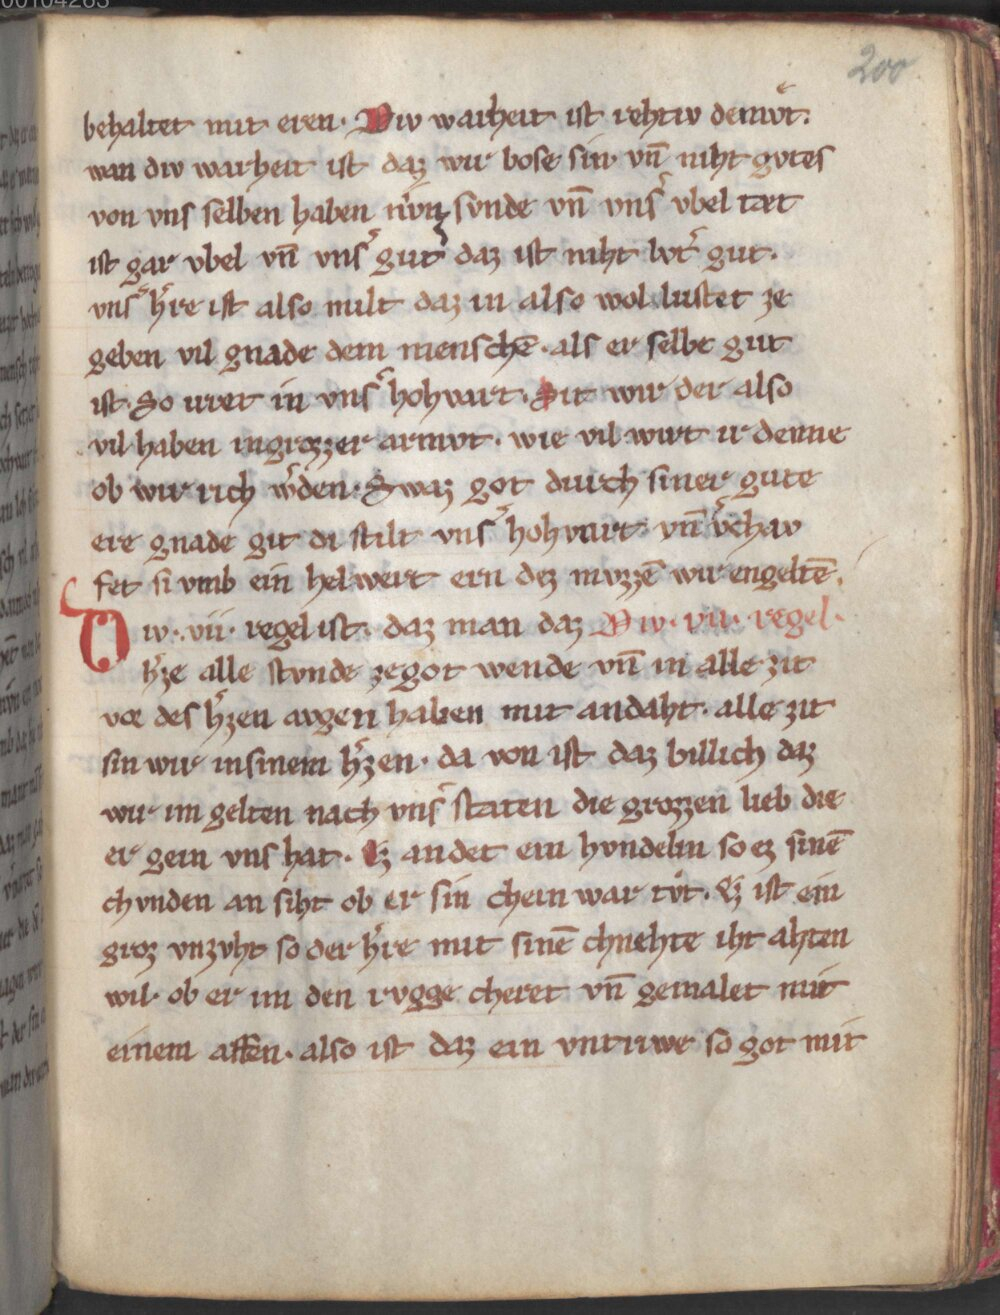 200
behaltet mit eren. Div warheit ist rehtiv demvͤt.
wan div warheit ist daz wir bose sin vn̄ niht gvtes
von vns selben haben svnde vn̄ vnsͣ vbel tæt
ist gar vbel vn̄ vnsͣ gut daz ist niht gut.
vnsͣ hͤre ist also milt daz in also wol lustet ze
geben vil gnade dem menschē. als er selbe gut
ist. So irret in vnsͣ hohvart. Sit wir der also
vil haben ingrozzer armvt. wie vil wirt ir denne
ob wir rich wͤden. Swaz got durch siner gute
ere gnade git di stilt vnsͣ hohvart. vn̄ vͦchav
fet si vmb ein helwert ern dez mvzzē wir engeltē.
Diw. vii. regel ist. daz man daz Div. vii. regel.
hͤze alle stvnde zegot wende vn̄ in alle zit
vor des hͤzen avgen haben mit andaht. alle zit
sin wir insinem hͤzen. da von ist daz billich daz
wir im gelten nach vnsͣ staten die grozzen lieb die
er gein vns hat. Ez andet ein hvndelin so ez sinē
chvnden an siht ob er sin chein war tvͤt. Ez ist ein
groz vnzvht so der hͤre mit sinē chnehte iht ahten
wil. ob er im den rvgge cheret vn̄ gemalet mit
einem affen. also ist daz ein vntriwe so got mit